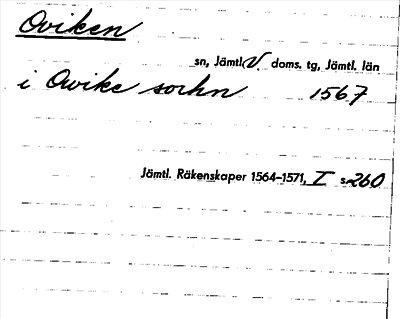 Oviken
sn, Jämtl. V. doms. tg, Jämtl. län
i Owike sochn 1567
Jämtl. Räkenskaper 1564–1571, I s. 260